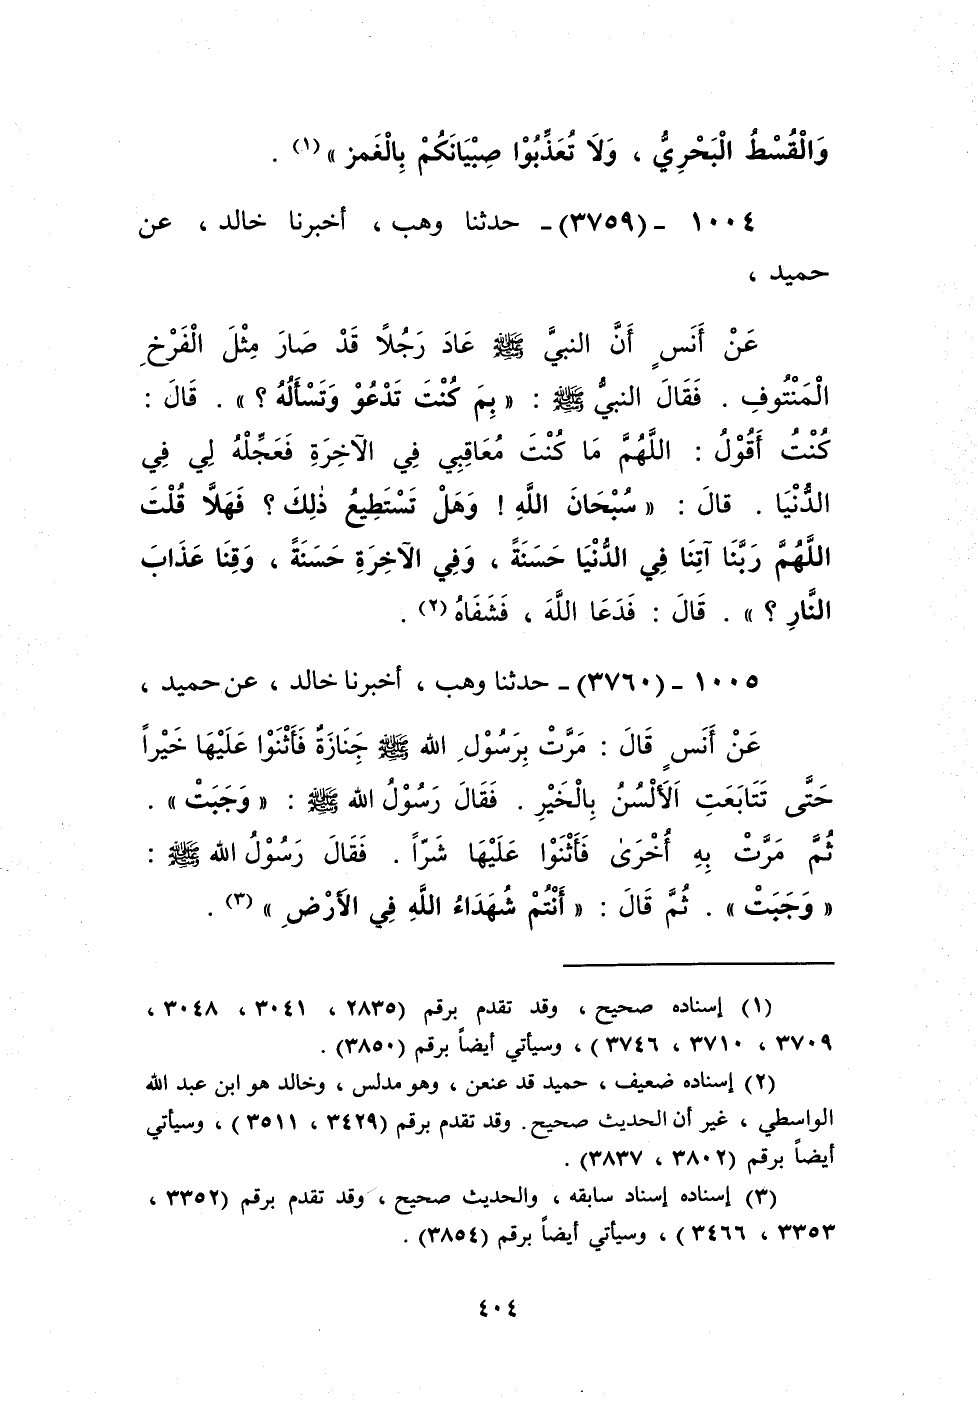 وَالْقُسْطُ الْبَحْرِيُّ ، وَلَا تُعَذِّبُوْا صِبْيَانَكُمْ بِالْغَمز » (١) .
١٠٠٤ - (٣٧٥٩) - حدثنا وهب ، أخبرنا خالد ، عن
حميد ،
عَنْ أَنَسٍ أَنَّ النبيَّ ﷺ عَادَ رَجُلاً قَدْ صَارَ مِثْلَ الْفَرْخِ
الْمَنْتُوفِ . فَقَالَ النبيُّ ﷺ : « بِمَ كُنْتَ تَدْعُوْ وَتَسْأَلُهُ ؟ » . قَالَ :
كُنْتُ أَقُوْلُ : اللَّهُمَّ مَا كُنْتَ مُعَاقِبِي فِي الآخِرَةِ فَعَجِّلْهُ لِي فِي
الدُّنْيَا . قالَ : « سُبْحَانَ اللَّهِ ! وَهَلْ تَسْتَطِيعُ ذٰلِكَ ؟ فَهَلاَّ قُلْتَ
اللَّهُمَّ رَبَّنَا آتِنَا فِي الدُّنْيَا حَسَنَةً ، وَفِي الآخِرَةِ حَسَنَةً ، وَقِنَا عَذَابَ
النَّارِ ؟ » . قَالَ : فَدَعَا اللَّهَ ، فَشَفَاهُ (٢) .
١٠٠٥ - (٣٧٦٠) - حدثنا وهب ، أخبرنا خالد ، عن حميد ،
عَنْ أَنَسٍ قَالَ : مَرَّتْ بِرَسُوْلِ الله ﷺ جَنَازَةٌ فَأَثْنَوْا عَلَيْهَا خَيْراً
حَتَّى تَتَابَعَتِ اَلأَلْسُنُ بِالْخَيْرِ . فَقَالَ رَسُوْلُ الله ﷺ : « وَجَبَتْ » .
ثُمَّ مَرَّتْ بِهِ أُخْرَىٰ فَأَثْنَوْا عَلَيْهَا شَرّاً . فَقَالَ رَسُوْلُ الله ﷺ :
« وَجَبَتْ » . ثُمَّ قَالَ : « أَنْتُمْ شُهَدَاءُ اللَّهِ فِي الأَرْضِ » (٣) .
(١) إسناده صحيح ، وقد تقدم برقم (٢٨٣٥ ، ٣٠٤١ ، ٣٠٤٨ ،
٣٧٠٩ ، ٣٧١٠ ، ٣٧٤٦ ) ، وسيأتي أيضاً برقم (٣٨٥٠) .
(٢) إسناده ضعيف ، حميد قد عنعن ، وهو مدلس ، وخالد هو ابن عبد الله
الواسطي ، غير أن الحديث صحيح . وقد تقدم برقم (٣٤٢٩ ، ٣٥١١ ) ، وسيأتي
أيضاً برقم (٣٨٠٢ ، ٣٨٣٧) .
(٣) إسناده إسناد سابقه ، والحديث صحيح ، وقد تقدم برقم (٣٣٥٢ ،
٣٣٥٣ ، ٣٤٦٦ ) ، وسيأتي أيضاً برقم (٣٨٥٤) .
٤٠٤